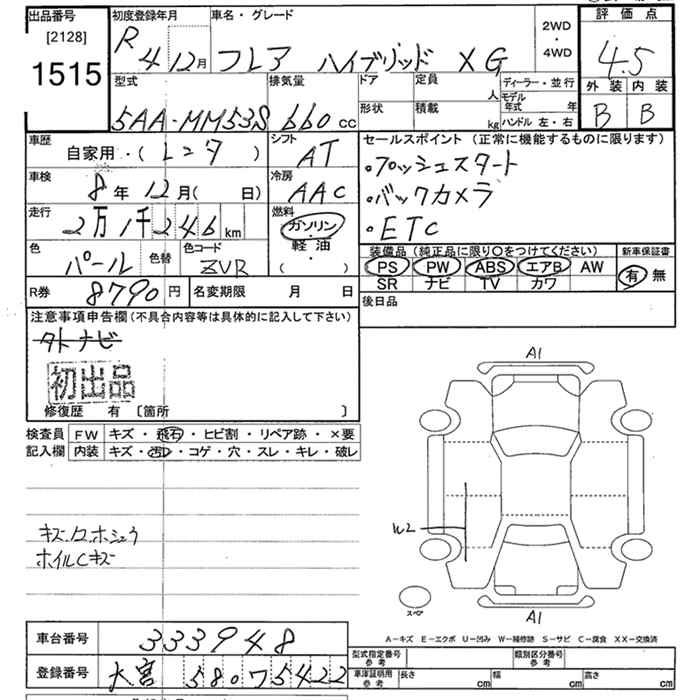 出品番号 初度登録年月 車名・グレード 2WD・4WD 評価点
[2128]
1515
R 4 12月 フレア ハイブリッド XG 4.5
外装 内装
B B
型式 排気量 ドア 定員 人 ディーラー・並行
モデル年式 年
5AA-MM53S 660 cc 形状 積載 kg ハンドル 左・右
車歴 シフト セールスポイント (正常に機能するものに限ります)
自家用・( ) AT ・プッシュスタート
車検 冷房
8年 12月( 日) AAC ・バックカメラ
走行 燃料
2万1千246 km ガソリン・ ・ETC
軽油
( ・ )
色 色替 色コード
パール ZVR
装備品 (純正品に限り〇をつけてください) 新車保証書
PS PW ABS エアB AW 有 無
SR ナビ TV カワ
R券 8790 円 名変期限 月 日 後日品
注意事項申告欄 (不具合内容等は具体的に記入して下さい)
初出品
修復歴 有 [箇所 ]
検査員 FW キズ・飛石・ヒビ割・リペア跡・×要
記入欄 内装 キズ・汚レ・コゲ・穴・スレ・キレ・破レ
A1
W2
キズ ホシュウ
ホイルCキズ
スペア
A1
A-キズ E-エクボ U-凹み W-補修跡 S-サビ C-腐食 XX-交換済
車台番号 333948
型式指定番号 参考 類別区分番号 参考
登録番号 大宮 580 5422
車庫証明用 参考 長さ cm 幅 cm 高さ cm